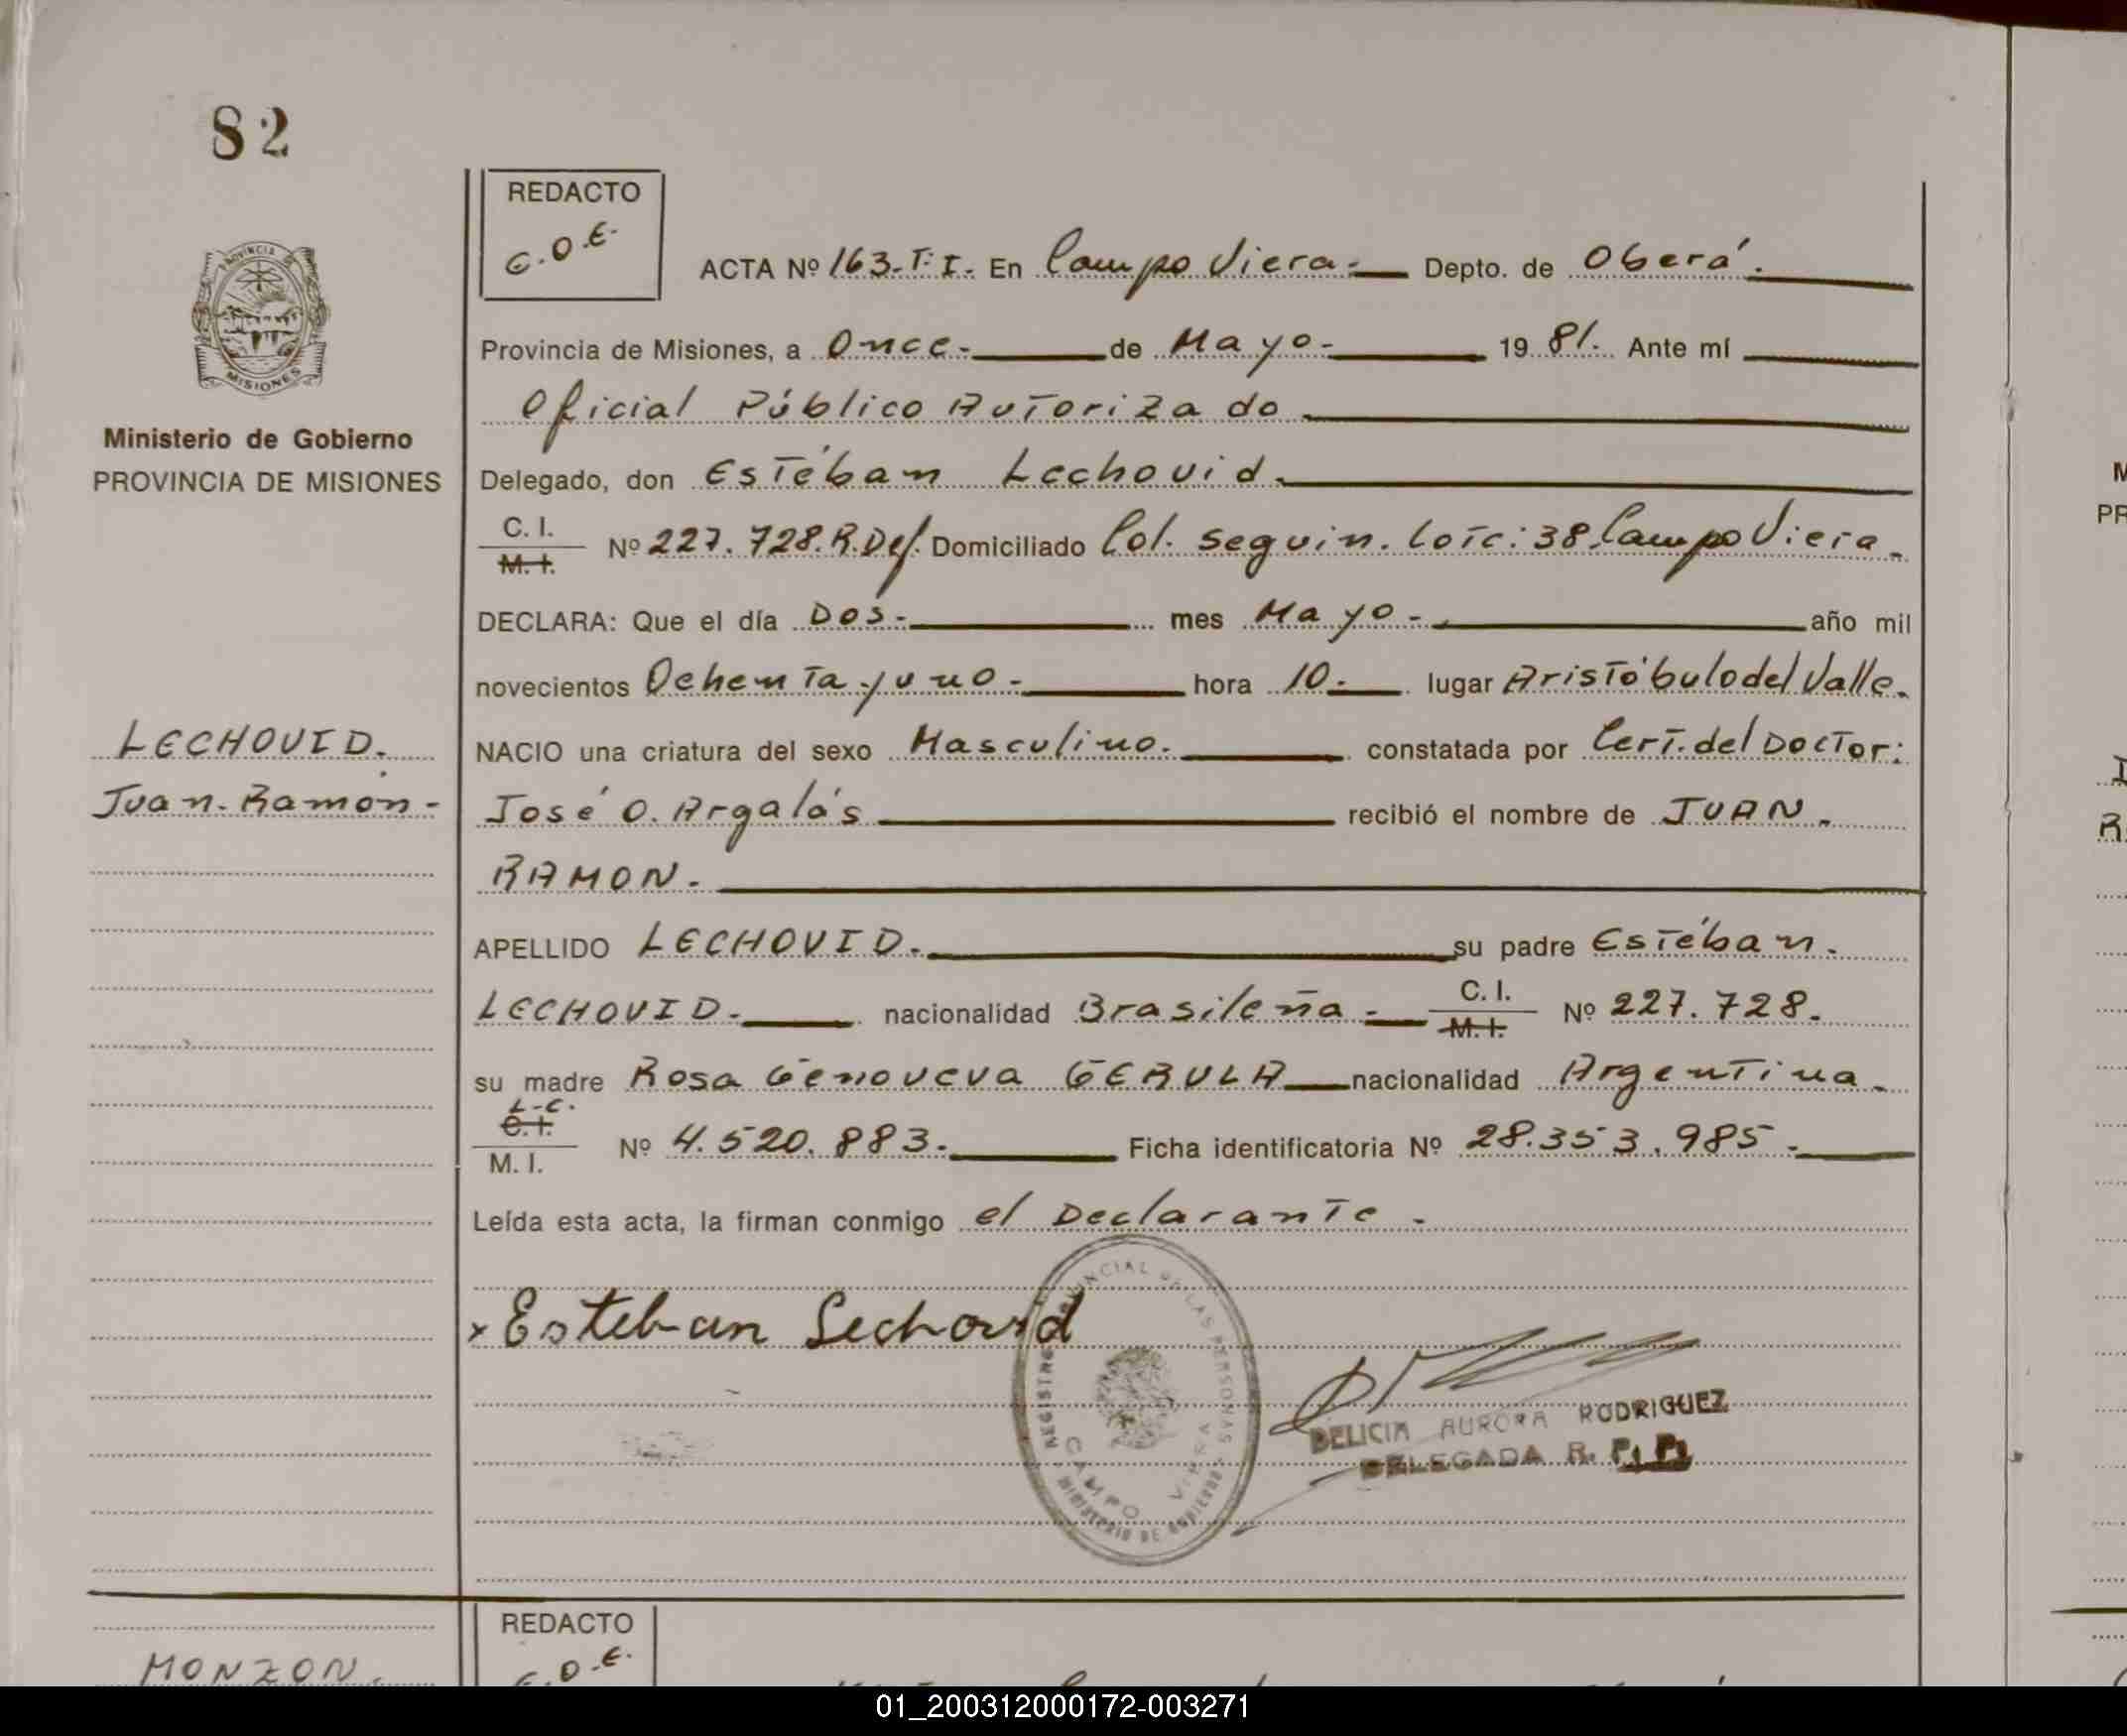 82
REDACTO
G.O.E.
PROVINCIA DE
MISIONES
Ministerio de Gobierno
PROVINCIA DE MISIONES
LECHOVID.
Juan. Ramón-
ACTA Nº 163-T: I. En Campo Viera.- Depto. de Oberá.
Provincia de Misiones, a Once.- de Mayo- 1981. Ante mí
Oficial Público Autorizado
Delegado, don Estéban Lechovid.
C. I.
M. I. Nº 227.728.R.Def. Domiciliado Col. Seguin. Lote: 38 Campo Viera.
DECLARA: Que el día Dos.- mes Mayo.- año mil
novecientos Ochenta y uno.- hora 10.- lugar Aristóbulo del Valle.
NACIO una criatura del sexo Masculino. constatada por Cert. del Doctor:
José O. Argalás recibió el nombre de JUAN.
RAMON.
APELLIDO LECHOVID. su padre Estéban.
LECHOVID. nacionalidad Brasileña.- C. I.
M. I. Nº 227.728.
su madre Rosa Genoveva GERULA nacionalidad Argentina.
L-C.
C. I.
M. I. Nº 4.520.883. Ficha identificatoria Nº 28.353.985.-
Leída esta acta, la firman conmigo el Declarante.
x Esteban Lechovid
REGISTRO PROVINCIAL DE LAS PERSONAS
CAMPO VIERA
MINISTERIO DE GOBIERNO
DELICIA AURORA RODRIGUEZ
DELEGADA R. P. P.
REDACTO
G.O.E.
MONZON.
01_200312000172-003271